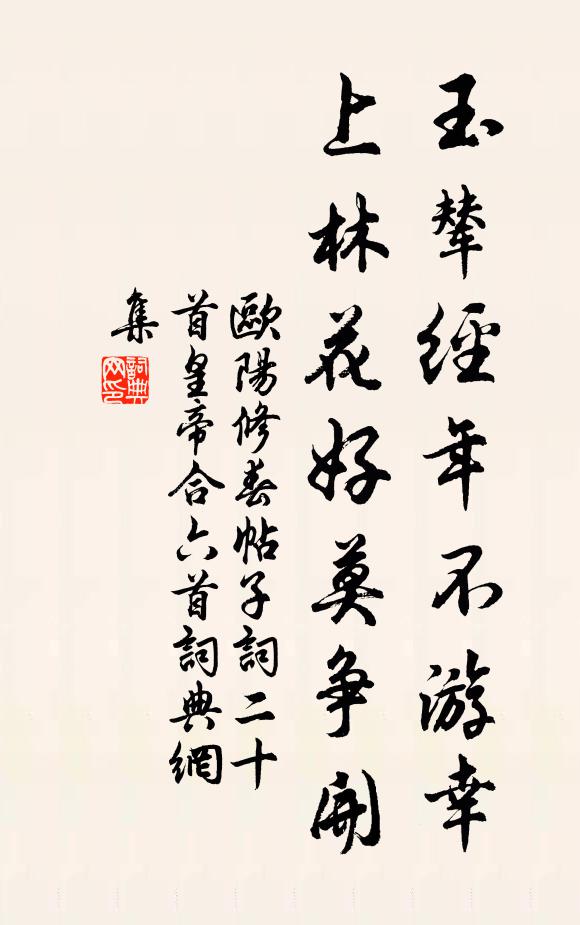 玉輦經年不游幸
上林花好莫爭開
歐陽修春帖子詞二十
首皇帝合六首詞典網
集
詞典
网印